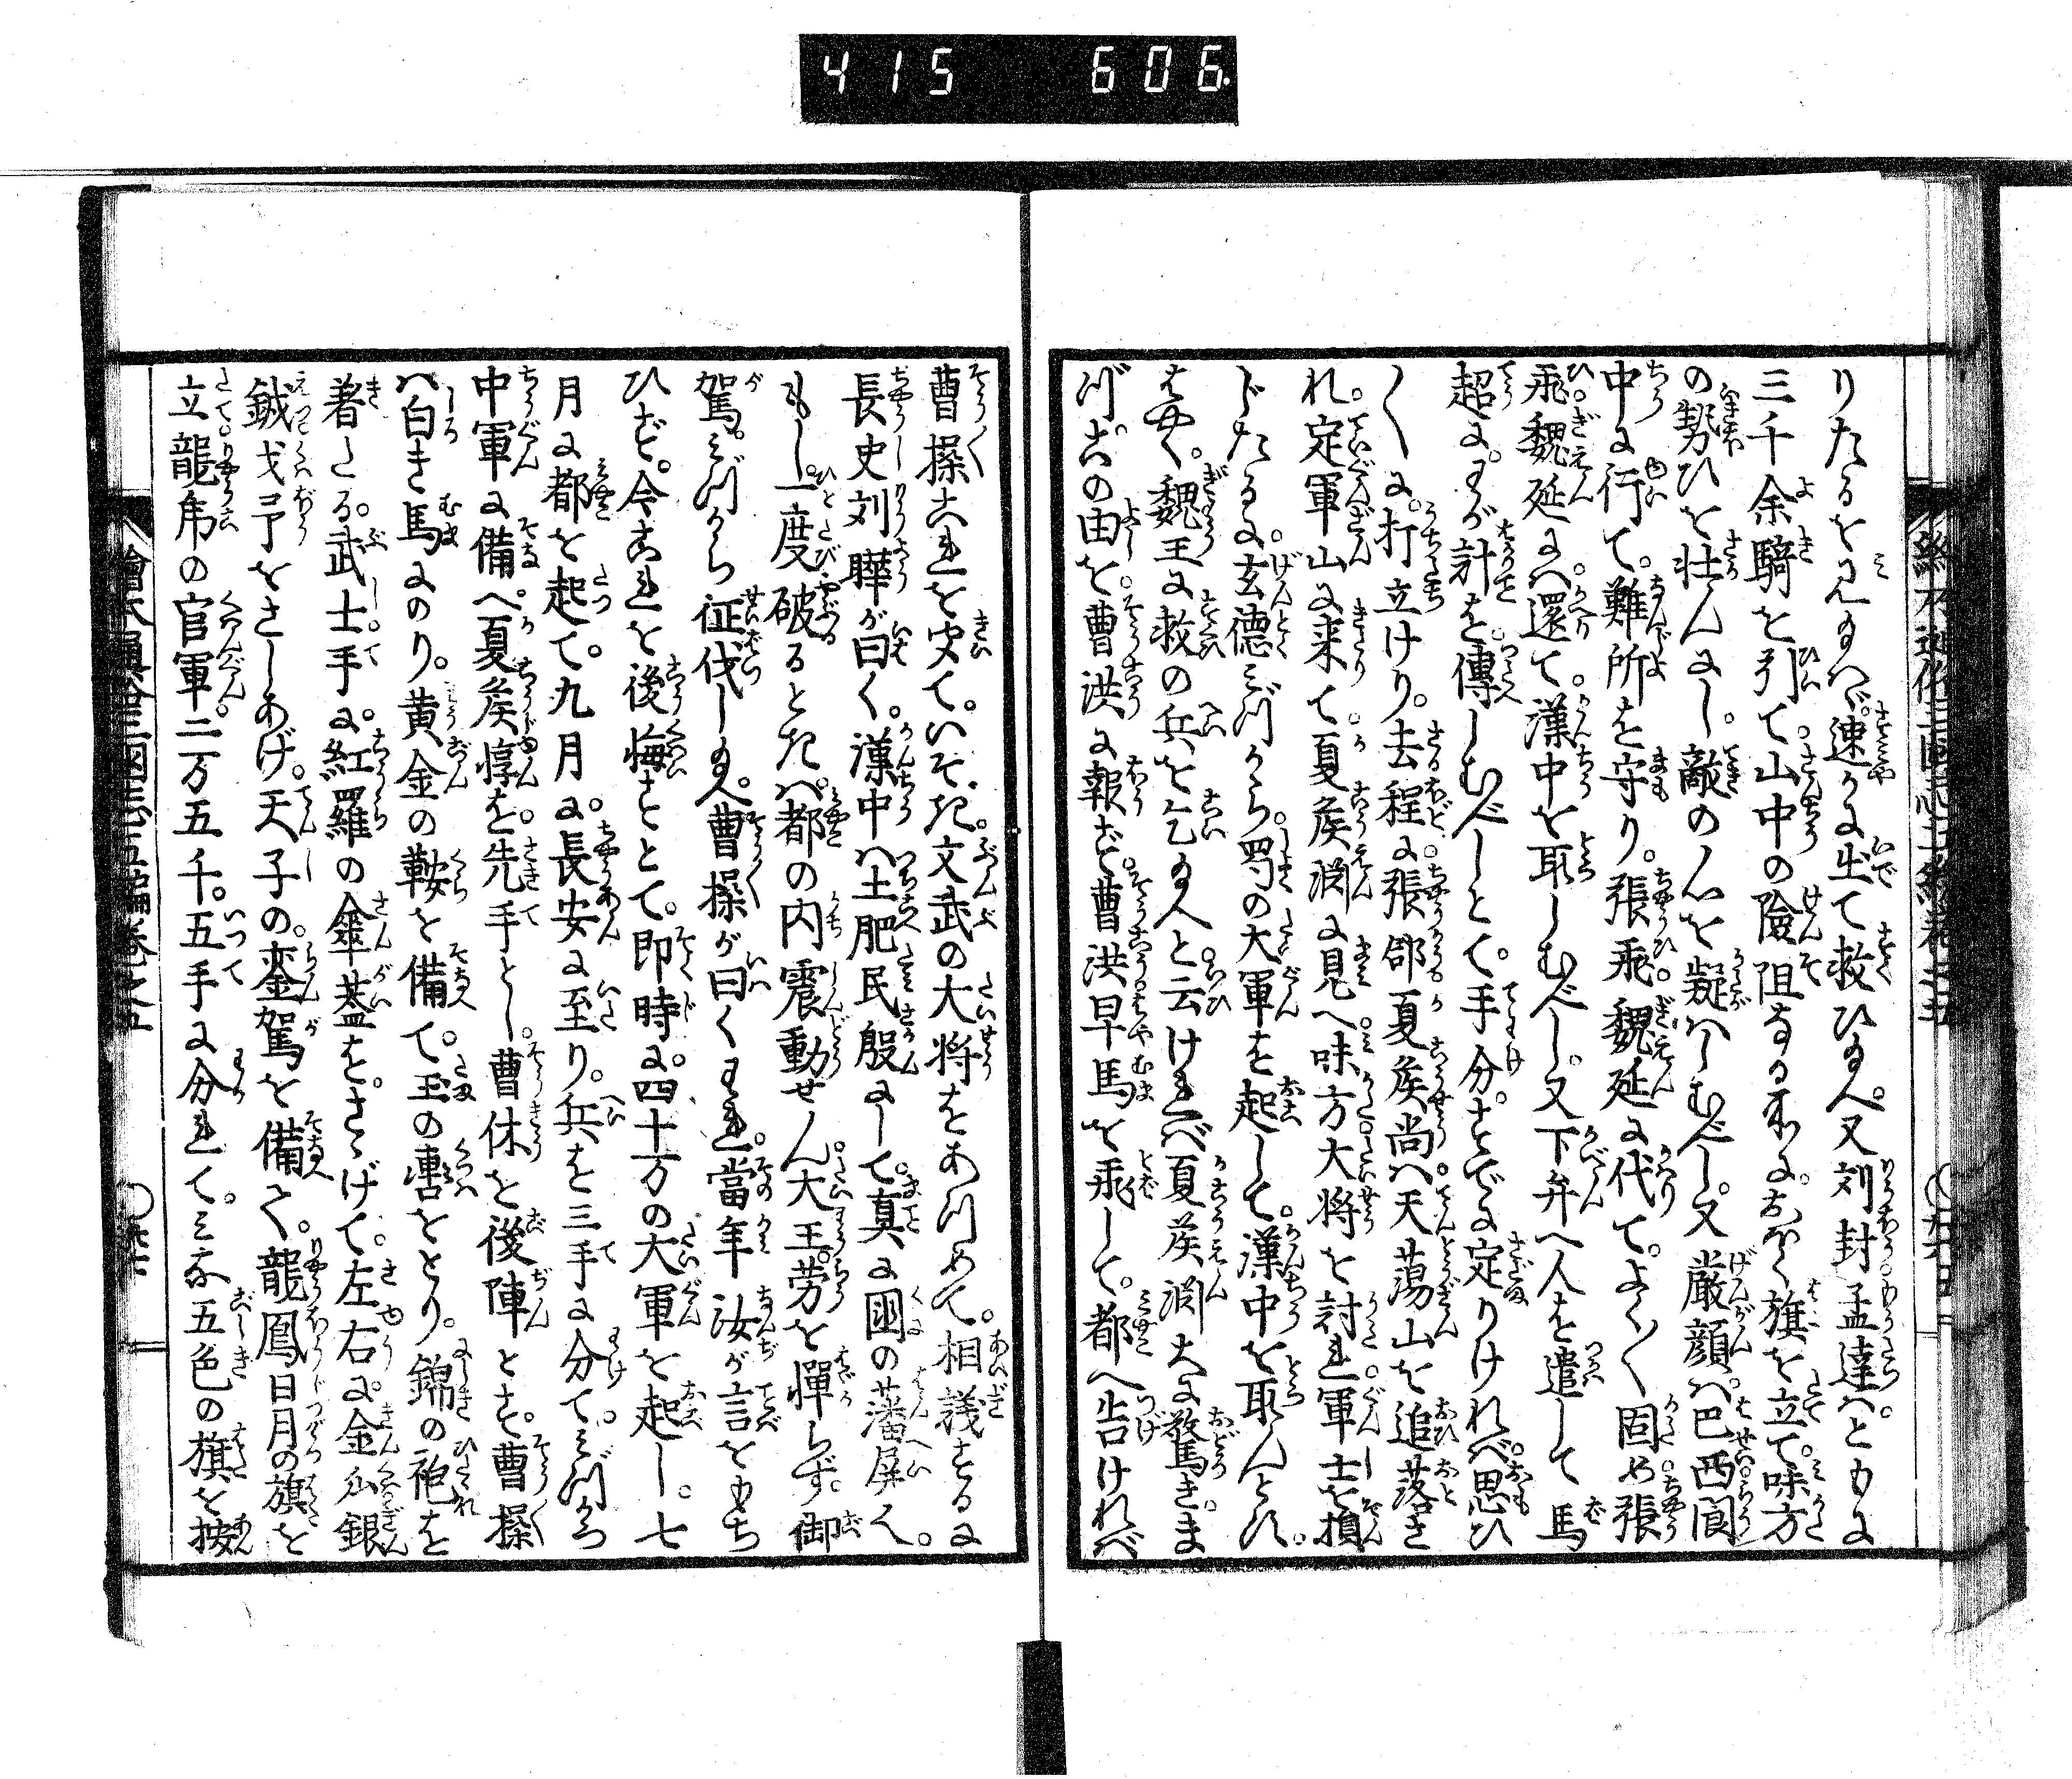 415 606
りたるを見給へば。速かに出て救ひ給へ。又劉封孟達はともに
三千余騎を引て。山中の險阻なる所に。おほく旗を立て。味方
の勢ひを壮んにし。敵の心を疑はしむべし。又厳顔は巴西閬
中に行て。難所を守り。張飛魏延に代て。よく〳〵固め張
飛魏延は還て。漢中を取しむべし。又下弁へ人を遣して馬
超に。わが計を傳しむべしとて。手分。すでに定りければ。思ひ
〳〵に。打立けり。去程に。張郃夏侯尚は天蕩山を追落さ
れ。定軍山に来て。夏侯渕に見へ味方大将を討れ軍士を損
じたるに。玄德みづから。蜀の大軍を起して。漢中を取んとす。
はやく。魏王に救の兵を乞給へと。云ければ夏侯渕大に驚き。ま
づ。此の由を。曹洪に報ず。曹洪早馬を飛して。都へ告ければ
曹操これを聞て。いそぎ。文武の大将をあつめて。相議するに
長史刘曄が曰く。漢中は土肥民殷にして。真に国の藩屏なり。
もし。一度破るときは。都の内震動せん。大王。労を憚らず。御
駕。みづから征伐し給へ。曹操が曰くわれ。當年汝が言をもち
ひず。今これを後悔すとて。即時に。四十万の大軍を起し。七
月に都を起て。九月に。長安に至り。兵を三手に分て。みづから
中軍に備へ。夏侯惇を。先手とし。曹休を後陣とす。曹操
は白き馬にのり。黄金の鞍を備て。玉の轡をとり。錦の袍を
着たる。武士手に。紅羅の傘蓋を。さゝげて。左右に金瓜銀
鉞戈矛をさしあげ。天子の。鑾駕を備へ。龍鳳日月の旗を
立。龍虎の官軍。二万五千。五手に分れて。みな五色の旗を按
繪本通俗三國志五編巻之五